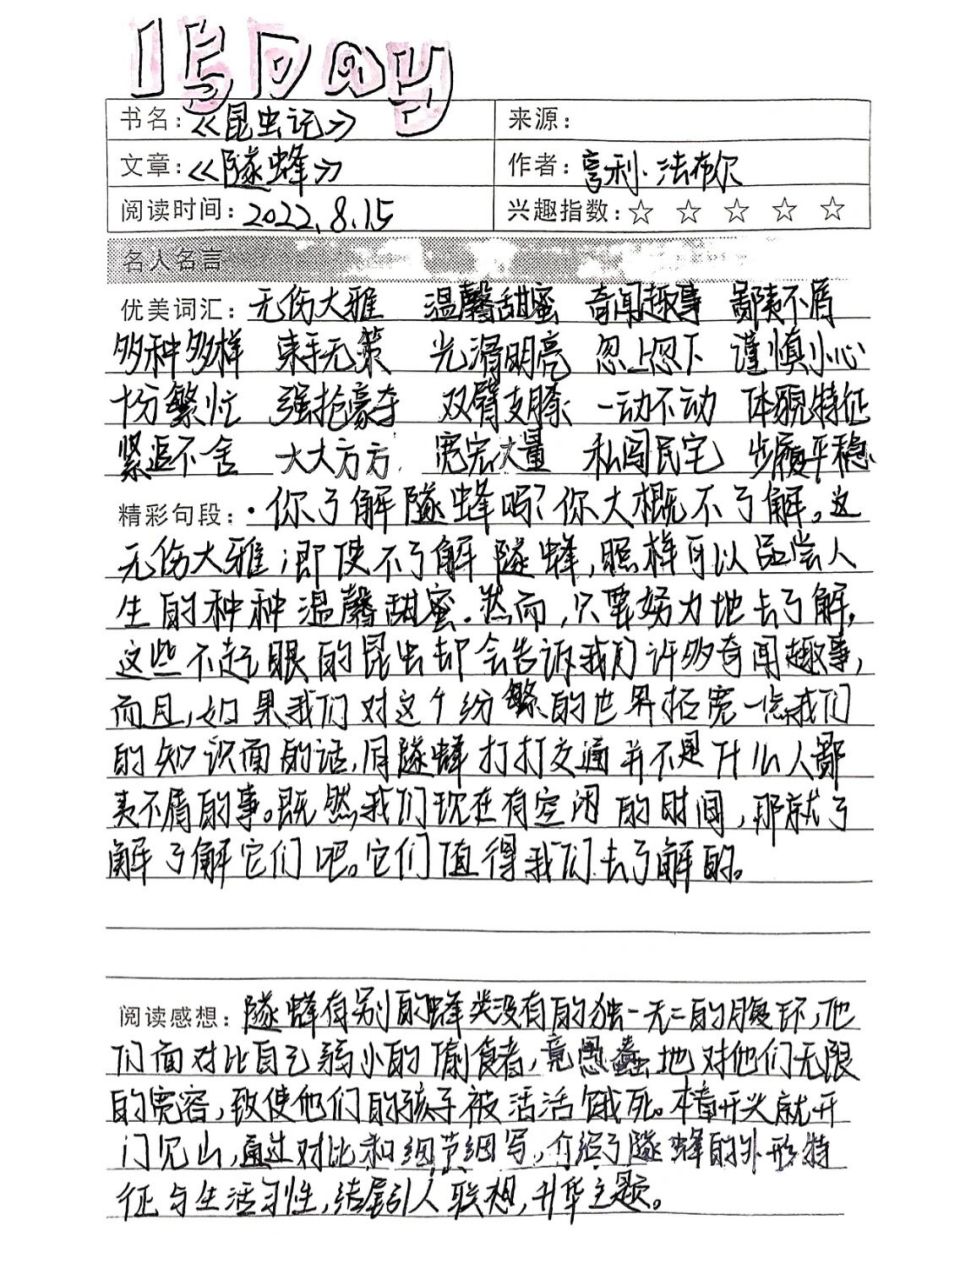 15Day
书名：《昆虫记》 来源：
文章：《隧蜂》 作者：亨利·法布尔
阅读时间：2022.8.15 兴趣指数：☆ ☆ ☆ ☆ ☆
名人名言
优美词汇：无伤大雅 温馨甜蜜 奇闻趣事 鄙夷不屑
多种多样 束手无策 光滑明亮 忽上忽下 谨慎小心
十分繁忙 强抢豪夺 双臂支膝 一动不动 体貌特征
紧追不舍 大大方方 宽宏大量 私闯民宅 步履平稳
精彩句段：·你了解隧蜂吗？你大概不了解。这
无伤大雅；即使不了解隧蜂，照样可以品尝人
生的种种温馨甜蜜.然而，只要努力地去了解，
这些不起眼的昆虫却会告诉我们许多奇闻趣事，
而且，如果我们对这个纷繁的世界拓宽一点我们
的知识面的话，同隧蜂打打交道并不是什么人鄙
夷不屑的事。既然我们现在有空闲的时间，那就了
解了解它们吧。它们值得我们去了解的。
阅读感想：隧蜂有别的蜂类没有的独一无二的腹环，他
们面对比自己弱小的偷食者，竟愚蠢地对他们无限
的宽容，致使他们的孩子被活活饿死。本章开头就开
门见山，通过对比和细节细写，介绍了隧蜂的外形特
征与生活习性，结尾引人联想，升华主题。